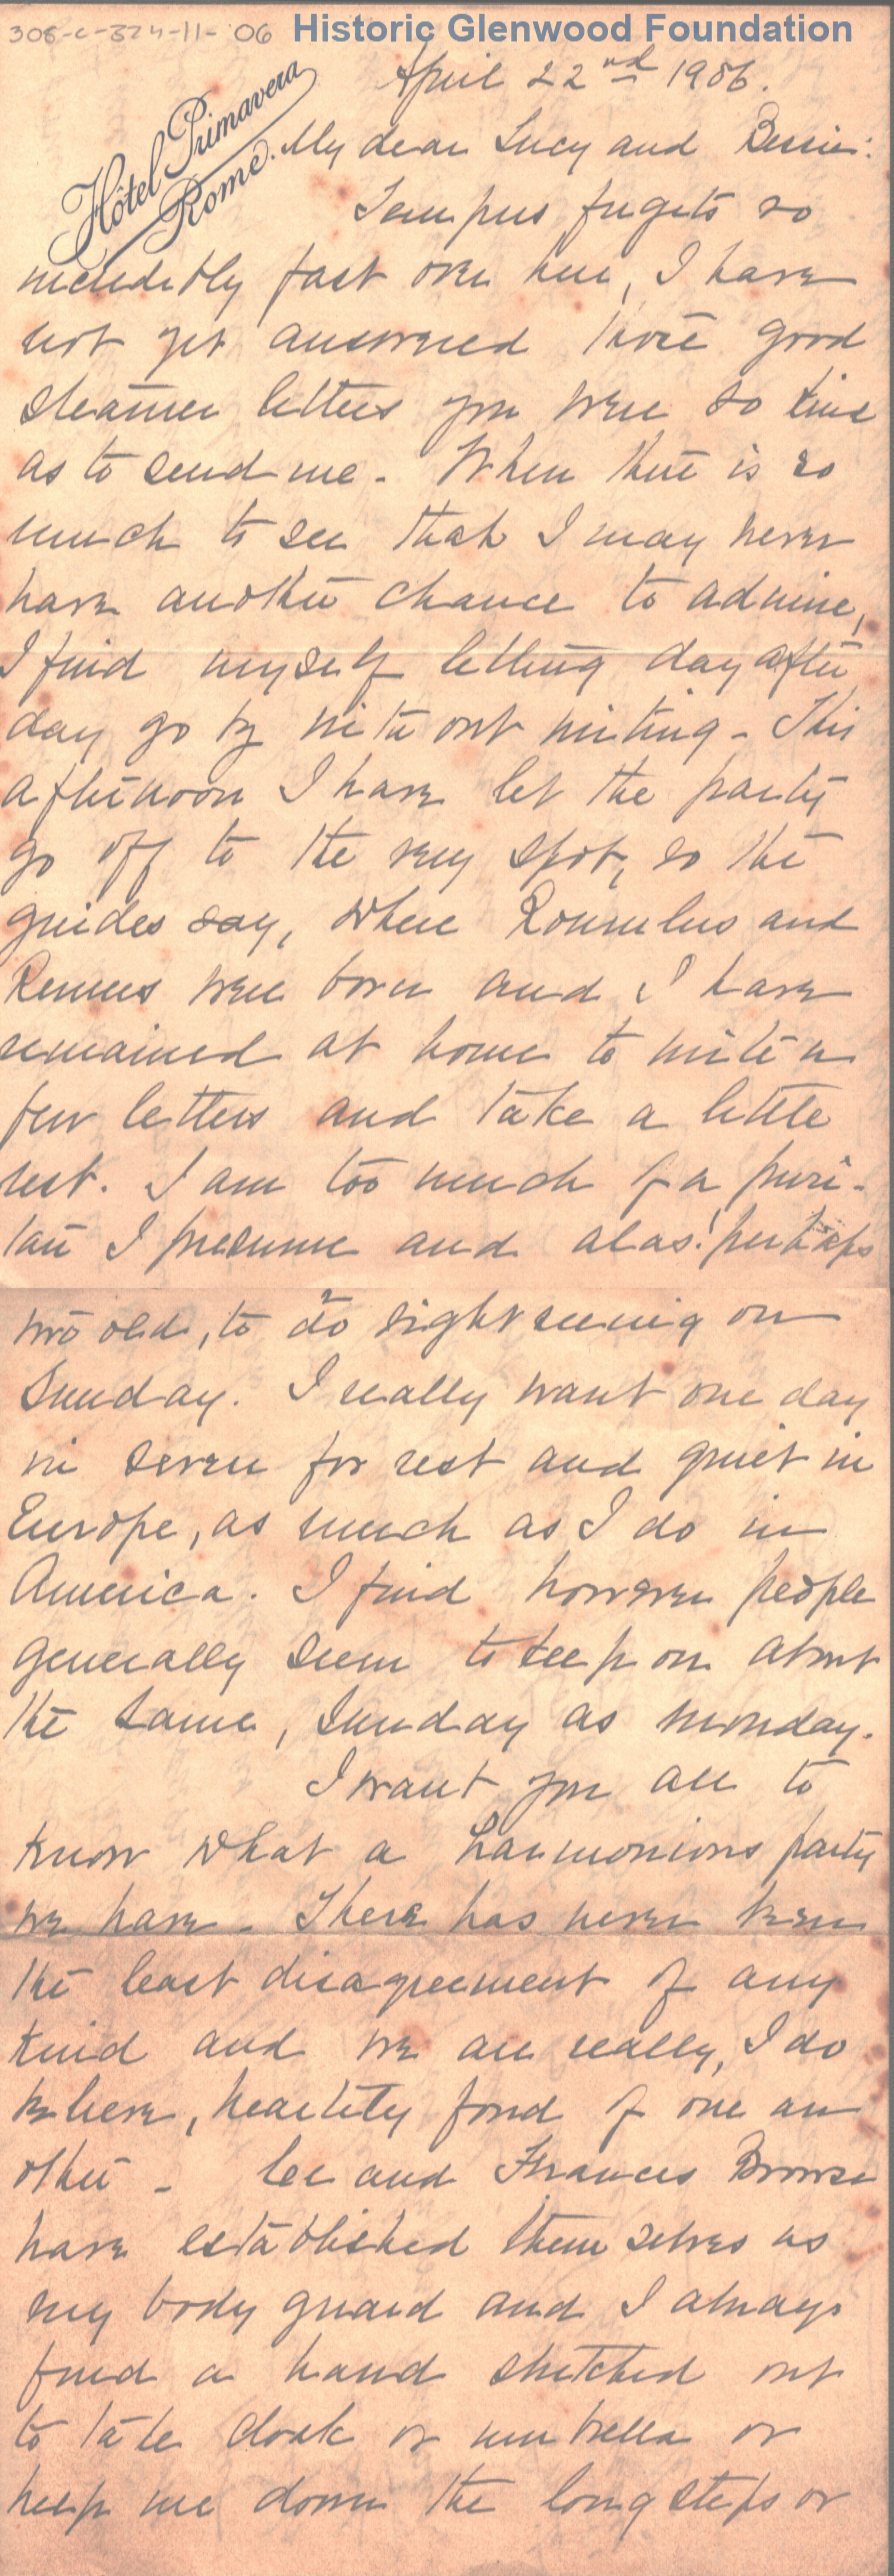 308-C-324-11-'06 Historic Glenwood Foundation
Hôtel Primavera
Rome.
April 22nd 1906.
My dear Lucy and Bessie:
Tempus fugets so
incredibly fast over here, I have
not yet answered those good
steamer letters you were so kind
as to send me. When there is so
much to see that I may never
have another chance to admire,
I find myself letting day after
day go by without writing - This
afternoon I have let the party
go off to the very spot, so the
guides say, where Romulus and
Remus were born and I have
remained at home to write a
few letters and take a little
rest. I am too much of a puri-
tan I presume and alas! perhaps
too old, to do sight seeing on
Sunday. I really want one day
in seven for rest and quiet in
Europe, as much as I do in
America. I find however people
generally seem to keep on about
the same, Sunday as Monday.
I want you all to
know what a harmonious party
we have - There has never been
the least disagreement of any
kind and we are really, I do
believe, heartily fond of one an
other - Lee and Frances Browse
have established themselves as
my body guard and I always
find a hand stretched out
to take cloak or umbrella or
help me down the long steps or